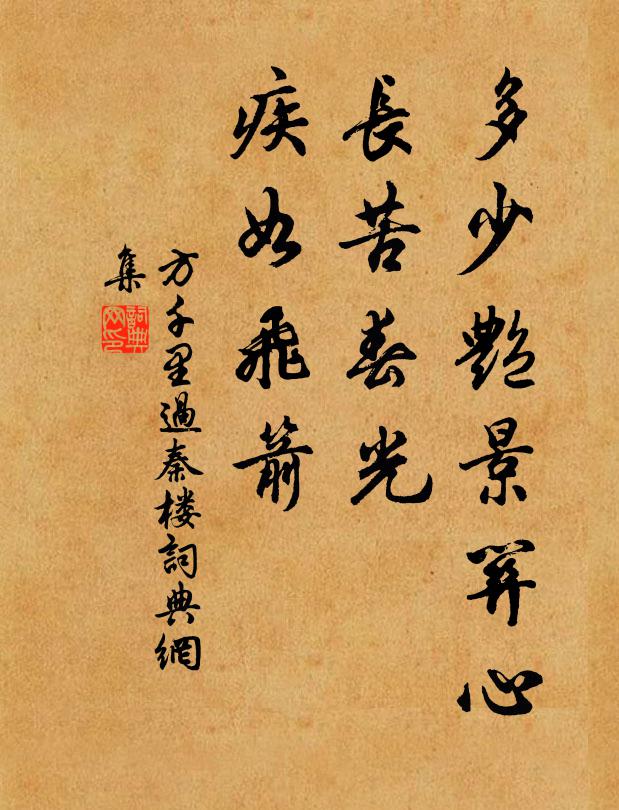 多少艷景關心
長苦春光
疾如飛箭
方千里過秦楼詞典網
集
詞典
网印